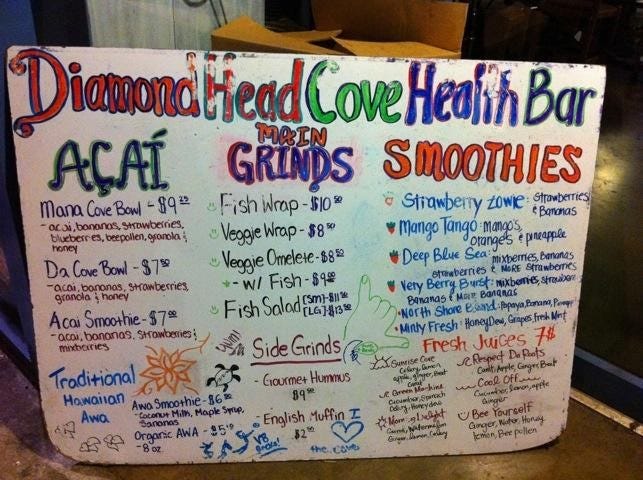 Diamond Head Cove Health Bar
AÇAÍ
Mana Cove Bowl - $9
-acai, bananas, strawberries,
blueberries, beepollen, granola &
honey
Da Cove Bowl - $7
-acai, bananas, strawberries,
granola & honey
Acai Smoothie - $7
-acai, bananas, strawberries &
mixberries
Traditional
Hawaiian
Awa
Awa Smoothie - $6
-Coconut Milk, Maple Syrup,
Bananas
Organic AWA - $5
- 8 oz
MAIN
GRINDS
Fish Wrap - $10
Veggie Wrap - $8
Veggie Omelete - $8
- w/ Fish - $9
Fish Salad [SM]-$11
[LG]-$13
Yum!
Side Grinds
- Gourmet Hummus
$9
- English Muffin
$2
I
the Cove
SMOOTHIES
Strawberry Zone: Strawberries
& Bananas
Mango Tango: mango's,
oranges & pineapple
Deep Blue Sea: mixberries, Bananas
Strawberries & MORE Strawberries
Very Berry Burst: mixberries, strawberries
Bananas & More Bananas
North Shore Blend: Papaya, Banana,
Minty Fresh: HoneyDew, Grapes, Fresh Mint
Fresh Juices 7
Sunrise Cove
Celery, Lemon
apple, Ginger, Beet
Green Machine
Cucumber, Spinach
Celery, Honeydew
Morning Delight
Carrot, Watermelon
Ginger, Lemon, Celery
Respect Da Roots
Carrot, Apple, Ginger, Beet
Cool Off
Cucumber, lemon, apple
Ginger
Bee Yourself
Ginger, Water, Honey
lemon, Bee pollen